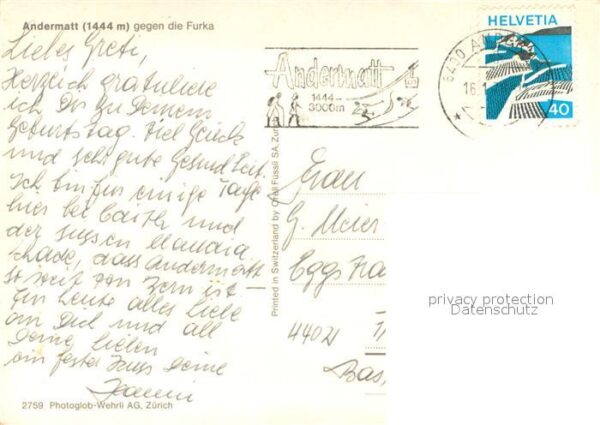 Andermatt (1444 m) gegen die Furka
Liebes Greti,
Herzlich gratuliere
ich Dir zu Deinem
Geburtstag. Viel Glück
und sehr gute Gesundheit.
Ich bin für einige Tage
hier bei und
der süssen Claudia.
Schade, dass Andermatt
so weit von Bern ist
Für heute alles Liebe
an Dich und all
Deine Lieben
ein fester Kuss Deine
HELVETIA
40
Andermatt
1444
3000m
16.
Printed in Switzerland by Orell Füssli SA, Zür
Frau
G. Meier
Eggs
Bas
privacy protection
Datenschutz
2759 Photoglob-Wehrli AG, Zürich